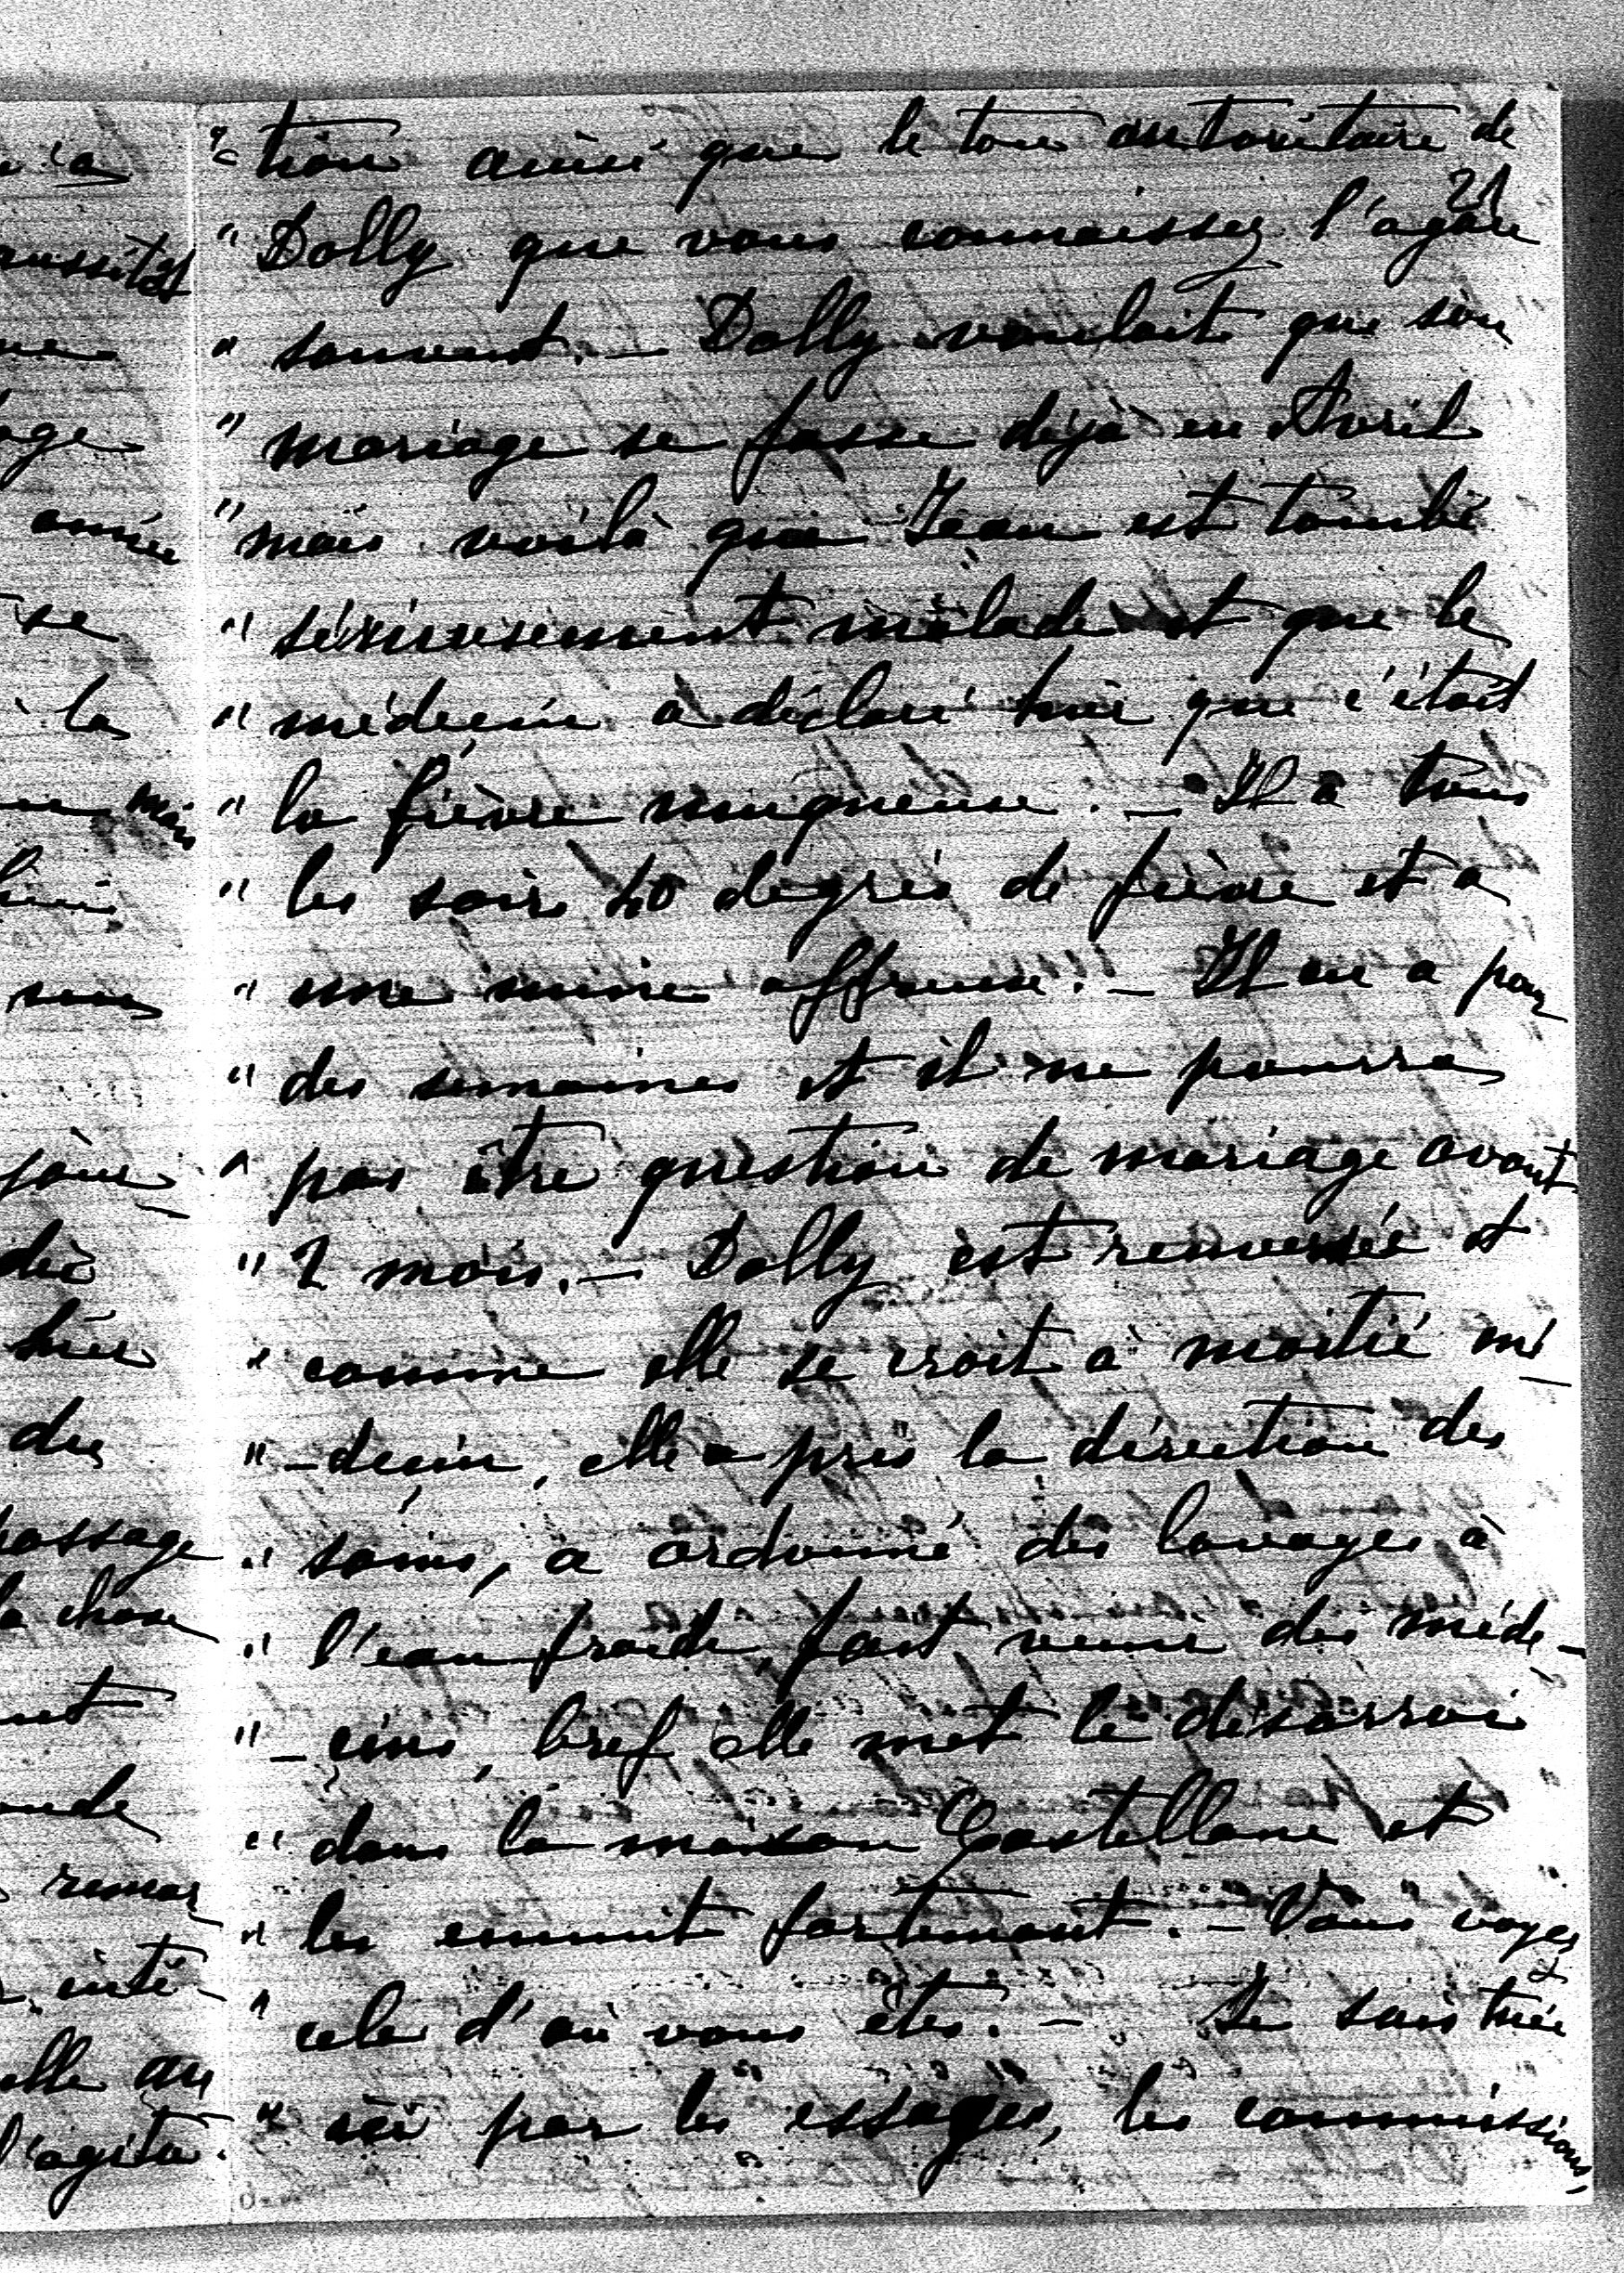 "tion ainsi que le ton autoritaire de
21
"Dolly que vous connaissez l'agace
"souvent. — Dolly voulait que son
"mariage se fasse déjà en Avril
"mais voilà que Jean est tombé
"sérieusement malade et que le
"médecin a déclaré hier que c'était
"la fièvre muqueuse. — Il a tous
"les soirs 40 degrés de fièvre et a
"une mine affreuse. — Il en a pour
"des semaines et il ne pourra
"pas être question de mariage avant
"2 mois. — Dolly est renversée et
"comme elle se croit à moitié mé
"-decin, elle a pris la direction des
"soins, a ordonné des lavages à
"l'eau froide, fait venir des méde-
"-cins, bref elle met le désarroi
"dans la maison Castellane et
"les ennuit fortement. — Vous voyez
"cela d'où vous êtes. — Je suis tuée
"ici par les essayages, les commissions,